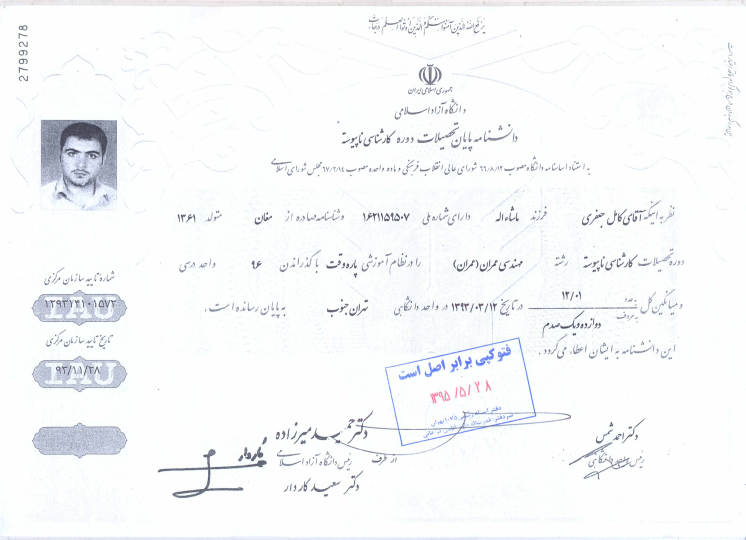 یرفع الله الذین آمنوا منکم والذین اوتوا العلم درجات
2799278
جمهوری اسلامی ایران
دانشگاه آزاد اسلامی
دانشنامه پایان تحصیلات دوره کارشناسی ناپیوسته
به استناد اساسنامه دانشگاه مصوب ۶۶/۸/۱۲ شورای عالی انقلاب فرهنگی و ماده واحده مصوب ۶۷/۲/۱۴ مجلس شورای اسلامی
نظر به اینکه آقای کامل جعفری فرزند ماشاءاله دارای شماره ملی ۱۶۲۱۱۵۹۵۰۷ و شناسنامه صادره از مغان متولد ۱۳۶۱
دوره تحصیلات کارشناسی ناپیوسته رشته مهندسی عمران (عمران) را در نظام آموزشی پاره وقت با گذراندن ۹۶ واحد درسی
و میانگین کل به عدد ۱۲/۰۱ به حروف دوازده و یک صدم در تاریخ ۱۳۹۳/۰۳/۱۲ در واحد دانشگاهی تهران جنوب به پایان رسانده است.
این دانشنامه به ایشان اعطاء می گردد.
شماره تایید سازمان مرکزی
۱۳۹۳۱۴۱۰۱۵۷۲
IAU
تاریخ تایید سازمان مرکزی
۹۳/۱۱/۲۸
IAU
فتوکپی برابر اصل است
۱۳۹۵/۵/۲۸
دکتر احمد شمس
رئیس واحد دانشگاهی
دکتر حمید میرزاده
از طرف رئیس دانشگاه آزاد اسلامی
دکتر سعید کاردار